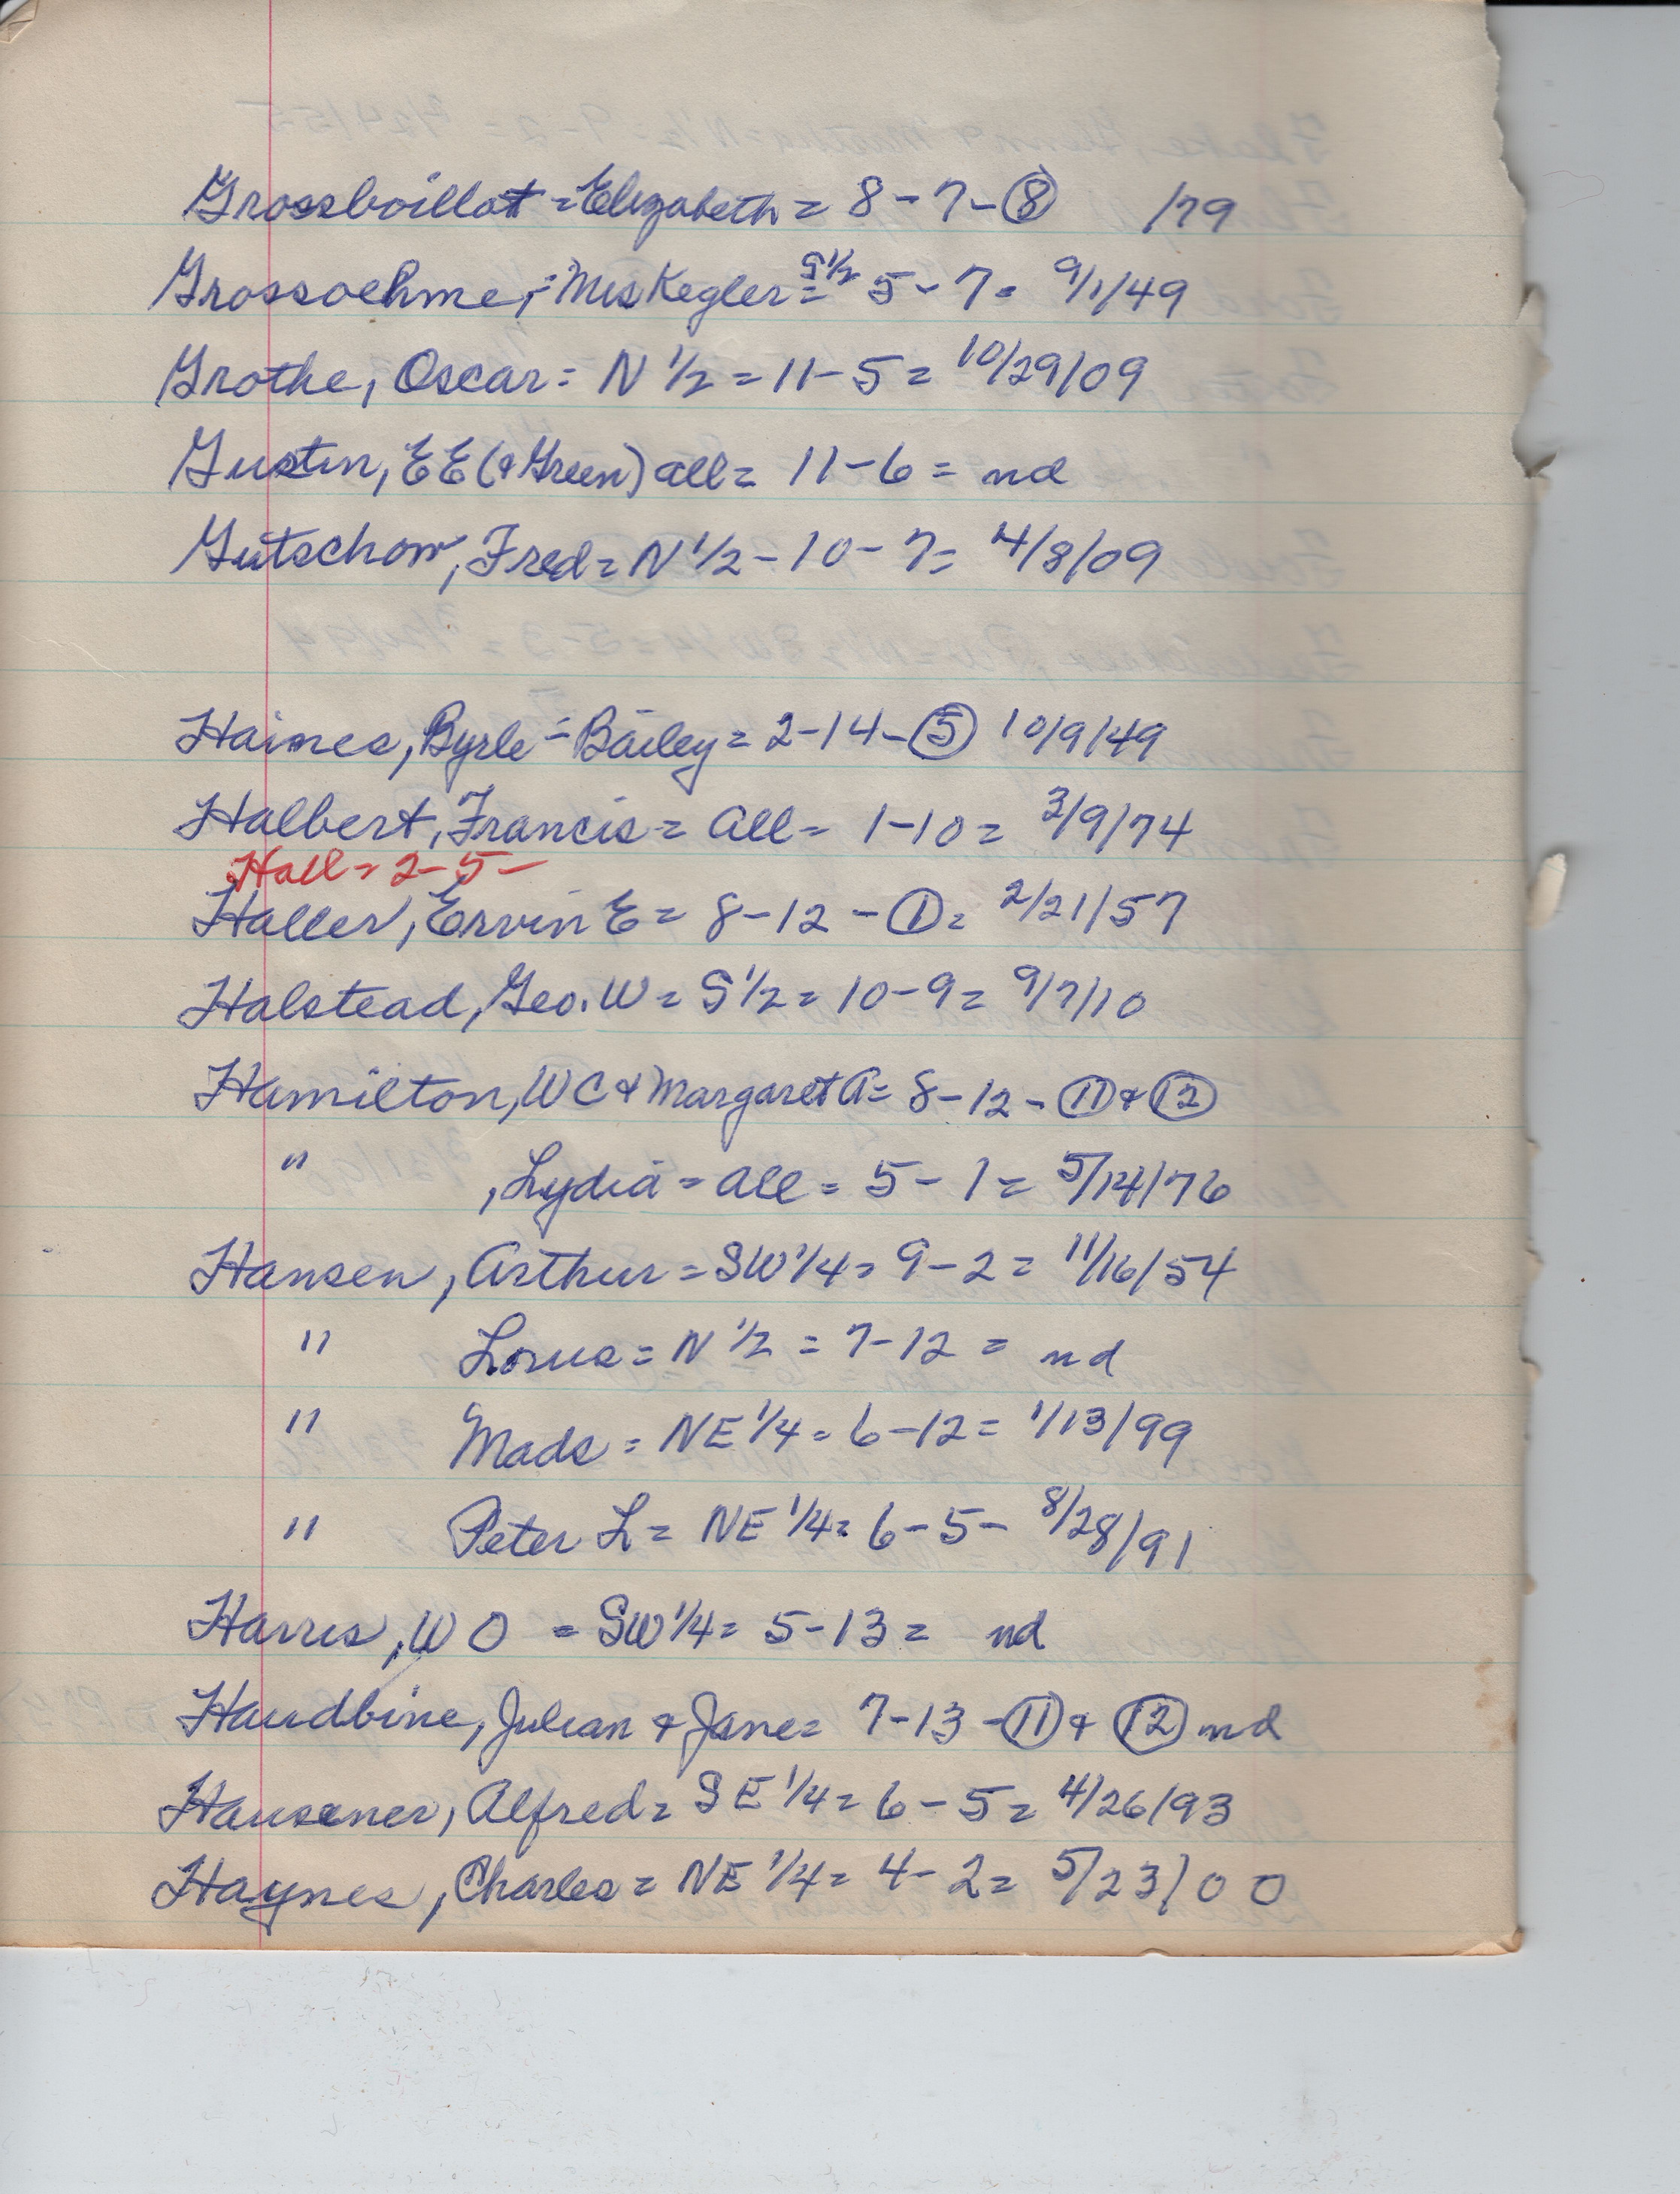 Grossboillot = Elizabeth = 8-7-⑧ /79
Grossoehme, = Mrs Kegler = S 1/2 5-7= 9/1/49
Grothe, Oscar = N 1/2 = 11-5 = 10/29/09
Gustin, EE (& Green) all = 11-6 = nd
Gutschow, Fred = N 1/2 - 10-7= 4/8/09
Haines, Byrle = Bailey = 2-14-⑤ 10/9/49
Halbert, Francis = all = 1-10 = 3/9/74
Hall = 2-5-
Haller, Ervin E = 8-12-① = 2/21/57
Halstead, Geo. W = S 1/2 = 10-9 = 9/7/10
Hamilton, WC & Margaret A = 8-12-⑪ & ⑫
" , Lydia = all = 5-1 = 5/14/76
Hansen, Arthur = SW 1/4 = 9-2 = 11/16/54
" Lorus = N 1/2 = 7-12 = nd
" Mads = NE 1/4 = 6-12 = 1/13/99
" Peter L = NE 1/4 = 6-5- 8/28/91
Harris, W O = SW 1/4 = 5-13 = nd
Haudbine, Julian & Jane = 7-13-⑪ & ⑫ nd
Hausener, Alfred = SE 1/4 = 6-5 = 4/26/93
Haynes, Charles = NE 1/4 = 4-2 = 5/23/00